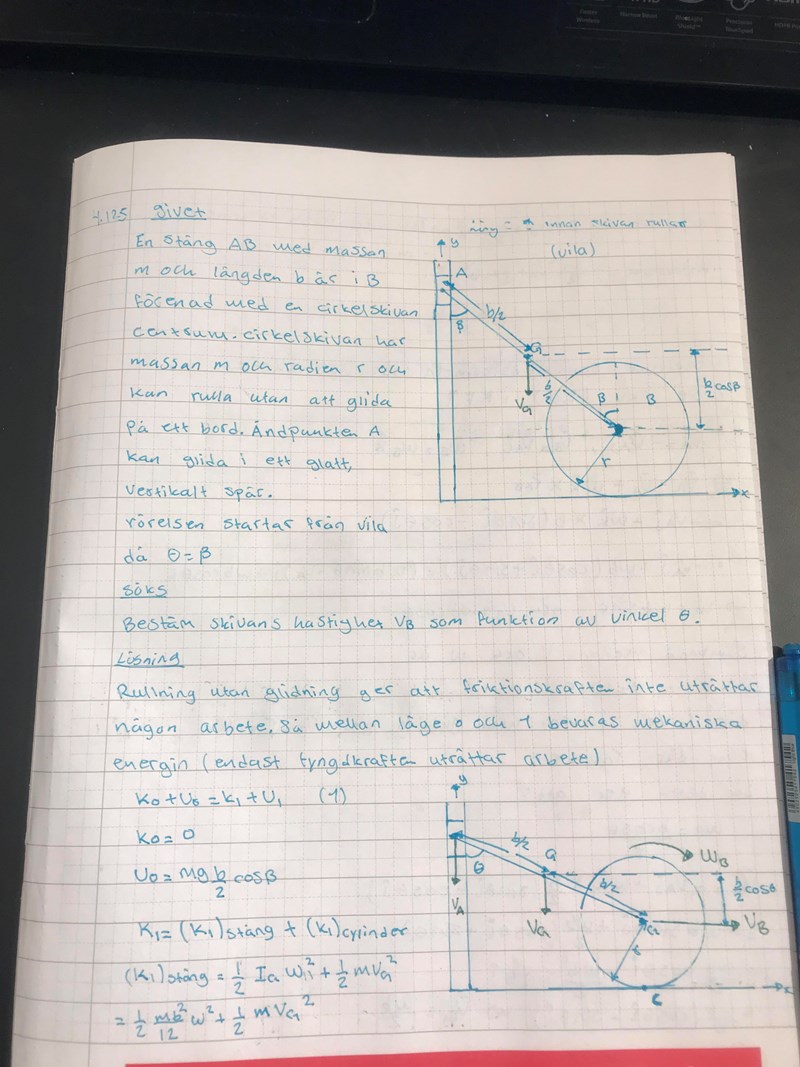 1.125 givet
En stång AB med massan
m och längden b är i B
förenad med en cirkelskivan
centrum. cirkelskivan har
massan m och radien r och
kan rulla utan att glida
på ett bord. Ändpunkten A
kan glida i ett glatt,
vertikalt spår.
rörelsen startar från vila
då θ=β
innan skivan rullar
(vila)
y
A
β
b/2
G
b/2
VG
β
B
b/2 cosβ
r
x
söks
Bestäm skivans hastighet VB som funktion av vinkel θ.
Lösning
Rullning utan glidning ger att friktionskraften inte uträttar
någon arbete. Så mellan läge 0 och 1 bevaras mekaniska
energin (endast tyngdkraften uträttar arbete)
K0 + U0 = K1 + U1 (1)
K0 = 0
U0 = mg b/2 cosβ
K1 = (K1)stång + (K1)cylinder
(K1)stång = 1/2 IG ω² + 1/2 mVG²
= 1/2 mb²/12 ω² + 1/2 mVG²
y
θ
b/2
G
b/2
VA
VG
ωB
b/2 cosθ
VB
r
C
x